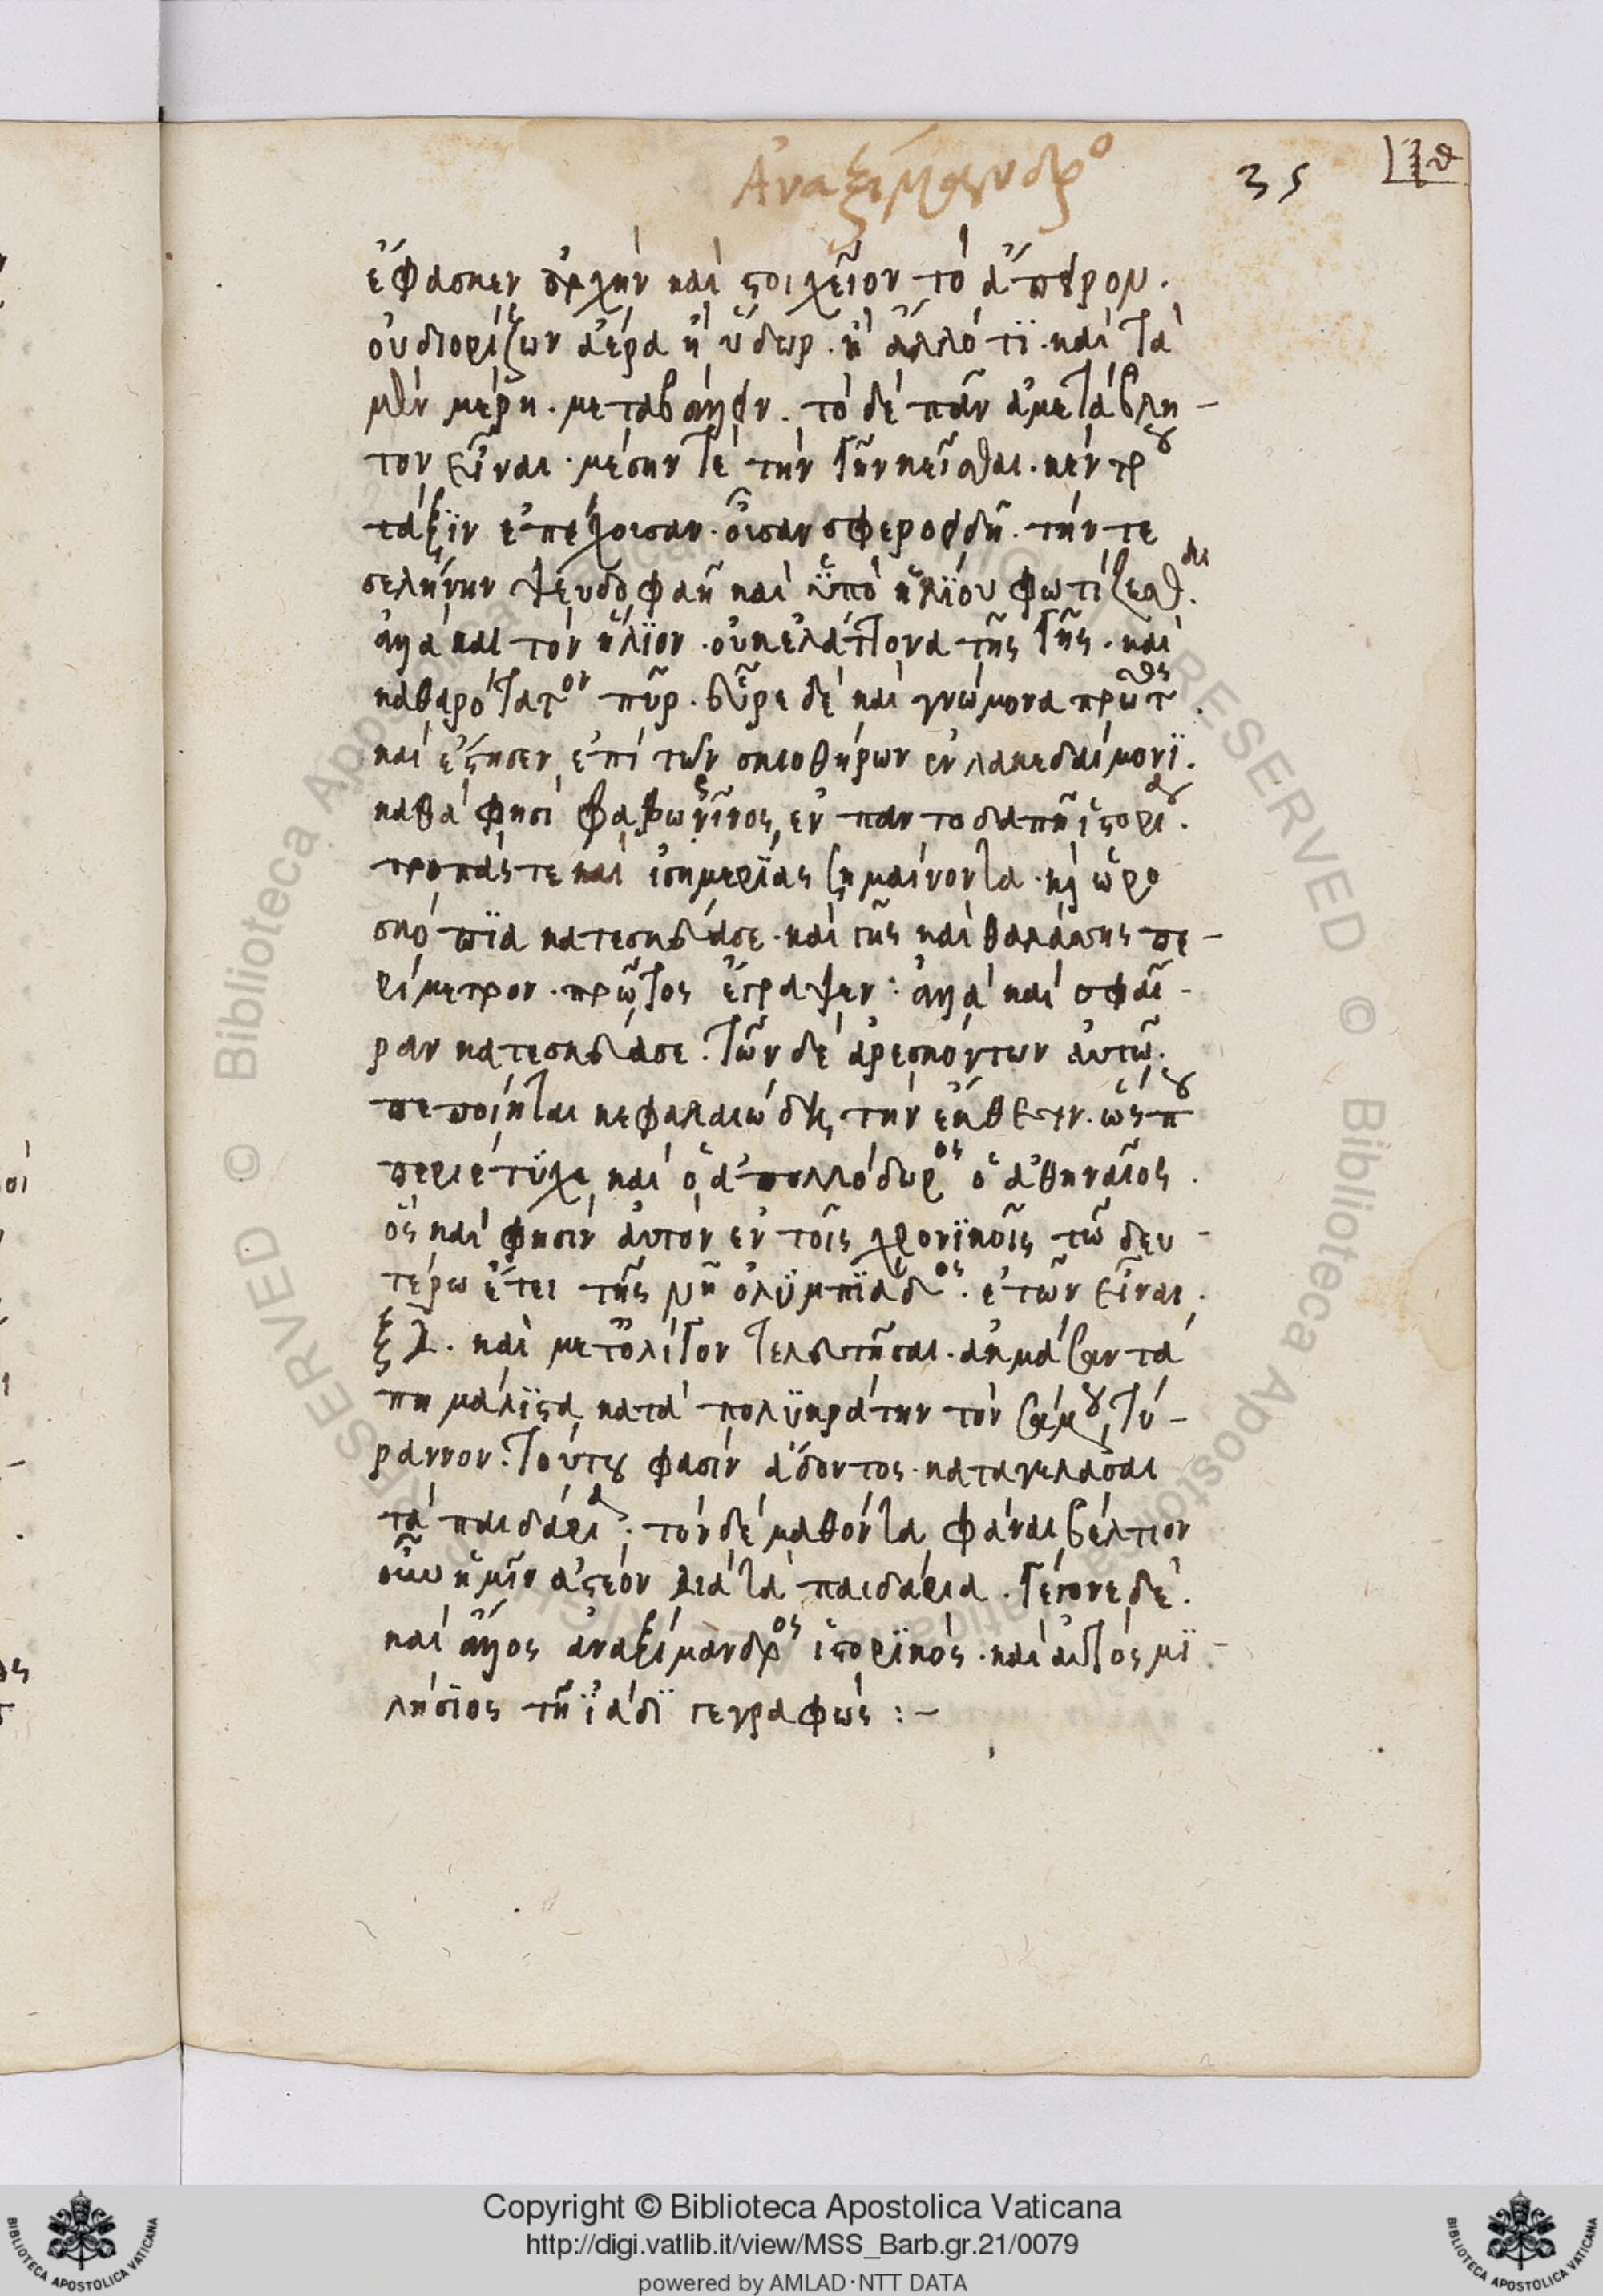 Ἀναξίμανδρο 35
ἔφασκεν ἀρχὴν καὶ στοιχεῖον τὸ ἄπειρον.
οὐ διορίζων ἀέρα ἢ ὕδωρ. ἢ ἄλλό τϊ. καὶ τὰ
μὲν μέρη. μεταβάλλειν. τὸ δὲ πᾶν ἀμετάβλη-
τον εἶναι. μέσην τὲ τὴν γῆν κεῖσθαι. κέντρου
τάξϊν ἐπέχουσαν. οὖσαν σφεροειδῆ. τήν τε
σελήνην ψευδοφαῆ καὶ ὑπὸ ἡλϊου φωτίζεσθαι.
ἀλλὰ καὶ τὸν ἥλϊον. οὐκ ἐλάττονα τῆς γῆς. καὶ
καθαρότατον πῦρ. εὗρε δὲ καὶ γνώμονα πρῶτος.
καὶ ἔστησεν ἐπὶ τῶν σκιοθήρων ἐν λακεδαίμονϊ.
καθά φησι φαβωρῖνος ἐν παντοδαπῆ ἱστορία.
τροπάς τε καὶ ἰσημερϊας σημαίνοντα. καὶ ὡρο
σκόπϊα κατεσκεύασε. καὶ γῆς καὶ θαλάσσης πε-
ρίμετρον. πρῶτος ἔγραψεν: ἀλλὰ καὶ σφαῖ-
ραν κατεσκεύασε. τῶν δὲ ἀρεσκόντων ἀυτῶ.
πεποίηται κεφαλαιώδη τὴν ἔκθεσιν. ὥς που
περιέτϋχε καὶ ὁ ἀπολλόδωρος ὁ ἀθηναῖος.
ὃς καί φησιν ἀυτὸν ἐν τοῖς χρονϊκοῖς τῶ δευ-
τέρω ἔτει τῆς νη ὀλϋμπϊάδος. ἐτῶν εἶναι.
ξδ. καὶ μετ᾽ ὀλίγον τελευτῆσαι. ἀκμάσαντά
πη μάλϊστα κατὰ πολϋκράτην τὸν σάμου τύ-
ραννον. τούτου φασὶν ἄδοντος. καταγελᾶσαι
τὰ παιδάρια. τὸν δὲ μαθόντα φάναι βέλτιον
οὖν ἡμῖν ἀστέον διὰ τὰ παιδάρια. γέγονε δὲ.
καὶ ἄλλος ἀναξίμανδρος ἱστορϊκός. καὶ αὐτὸς μϊ-
λήσϊος τῆ ϊάδϊ γεγραφώς :-
Copyright © Biblioteca Apostolica Vaticana
http://digi.vatlib.it/view/MSS_Barb.gr.21/0079
powered by AMLAD·NTT DATA